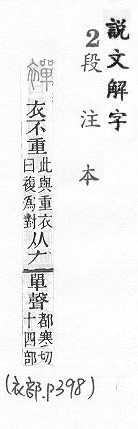 説文解字
2段注本
襌
衣不重此與重衣曰複爲對从
單聲都寒切十四部
(衣部.p398)